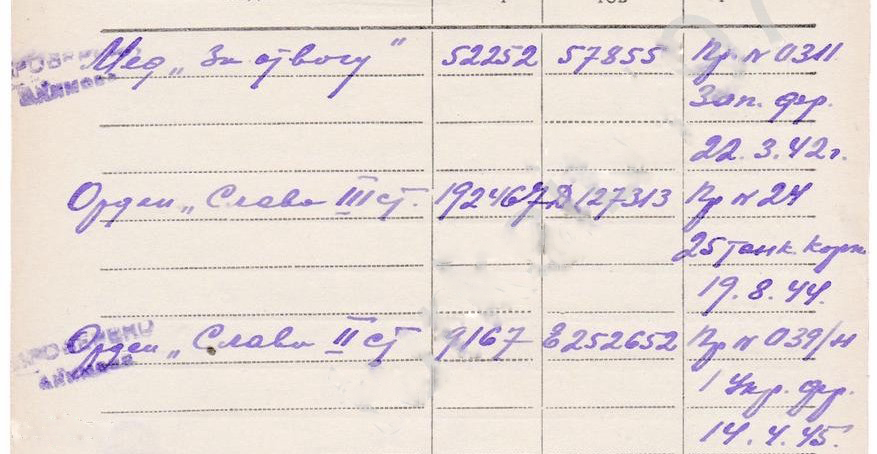 Мед „За отвогу" 52252 57855 Пр. № 0311
Зап. фр.
22. 3. 42г.
Орден „Слава III ст. 192467 Д127313 Пр № 24
25 танк. корп.
19. 8. 44.
Орден „Слава II ст 9167 Е252652 Пр № 039/н
1 Укр. фр.
14. 4. 45.